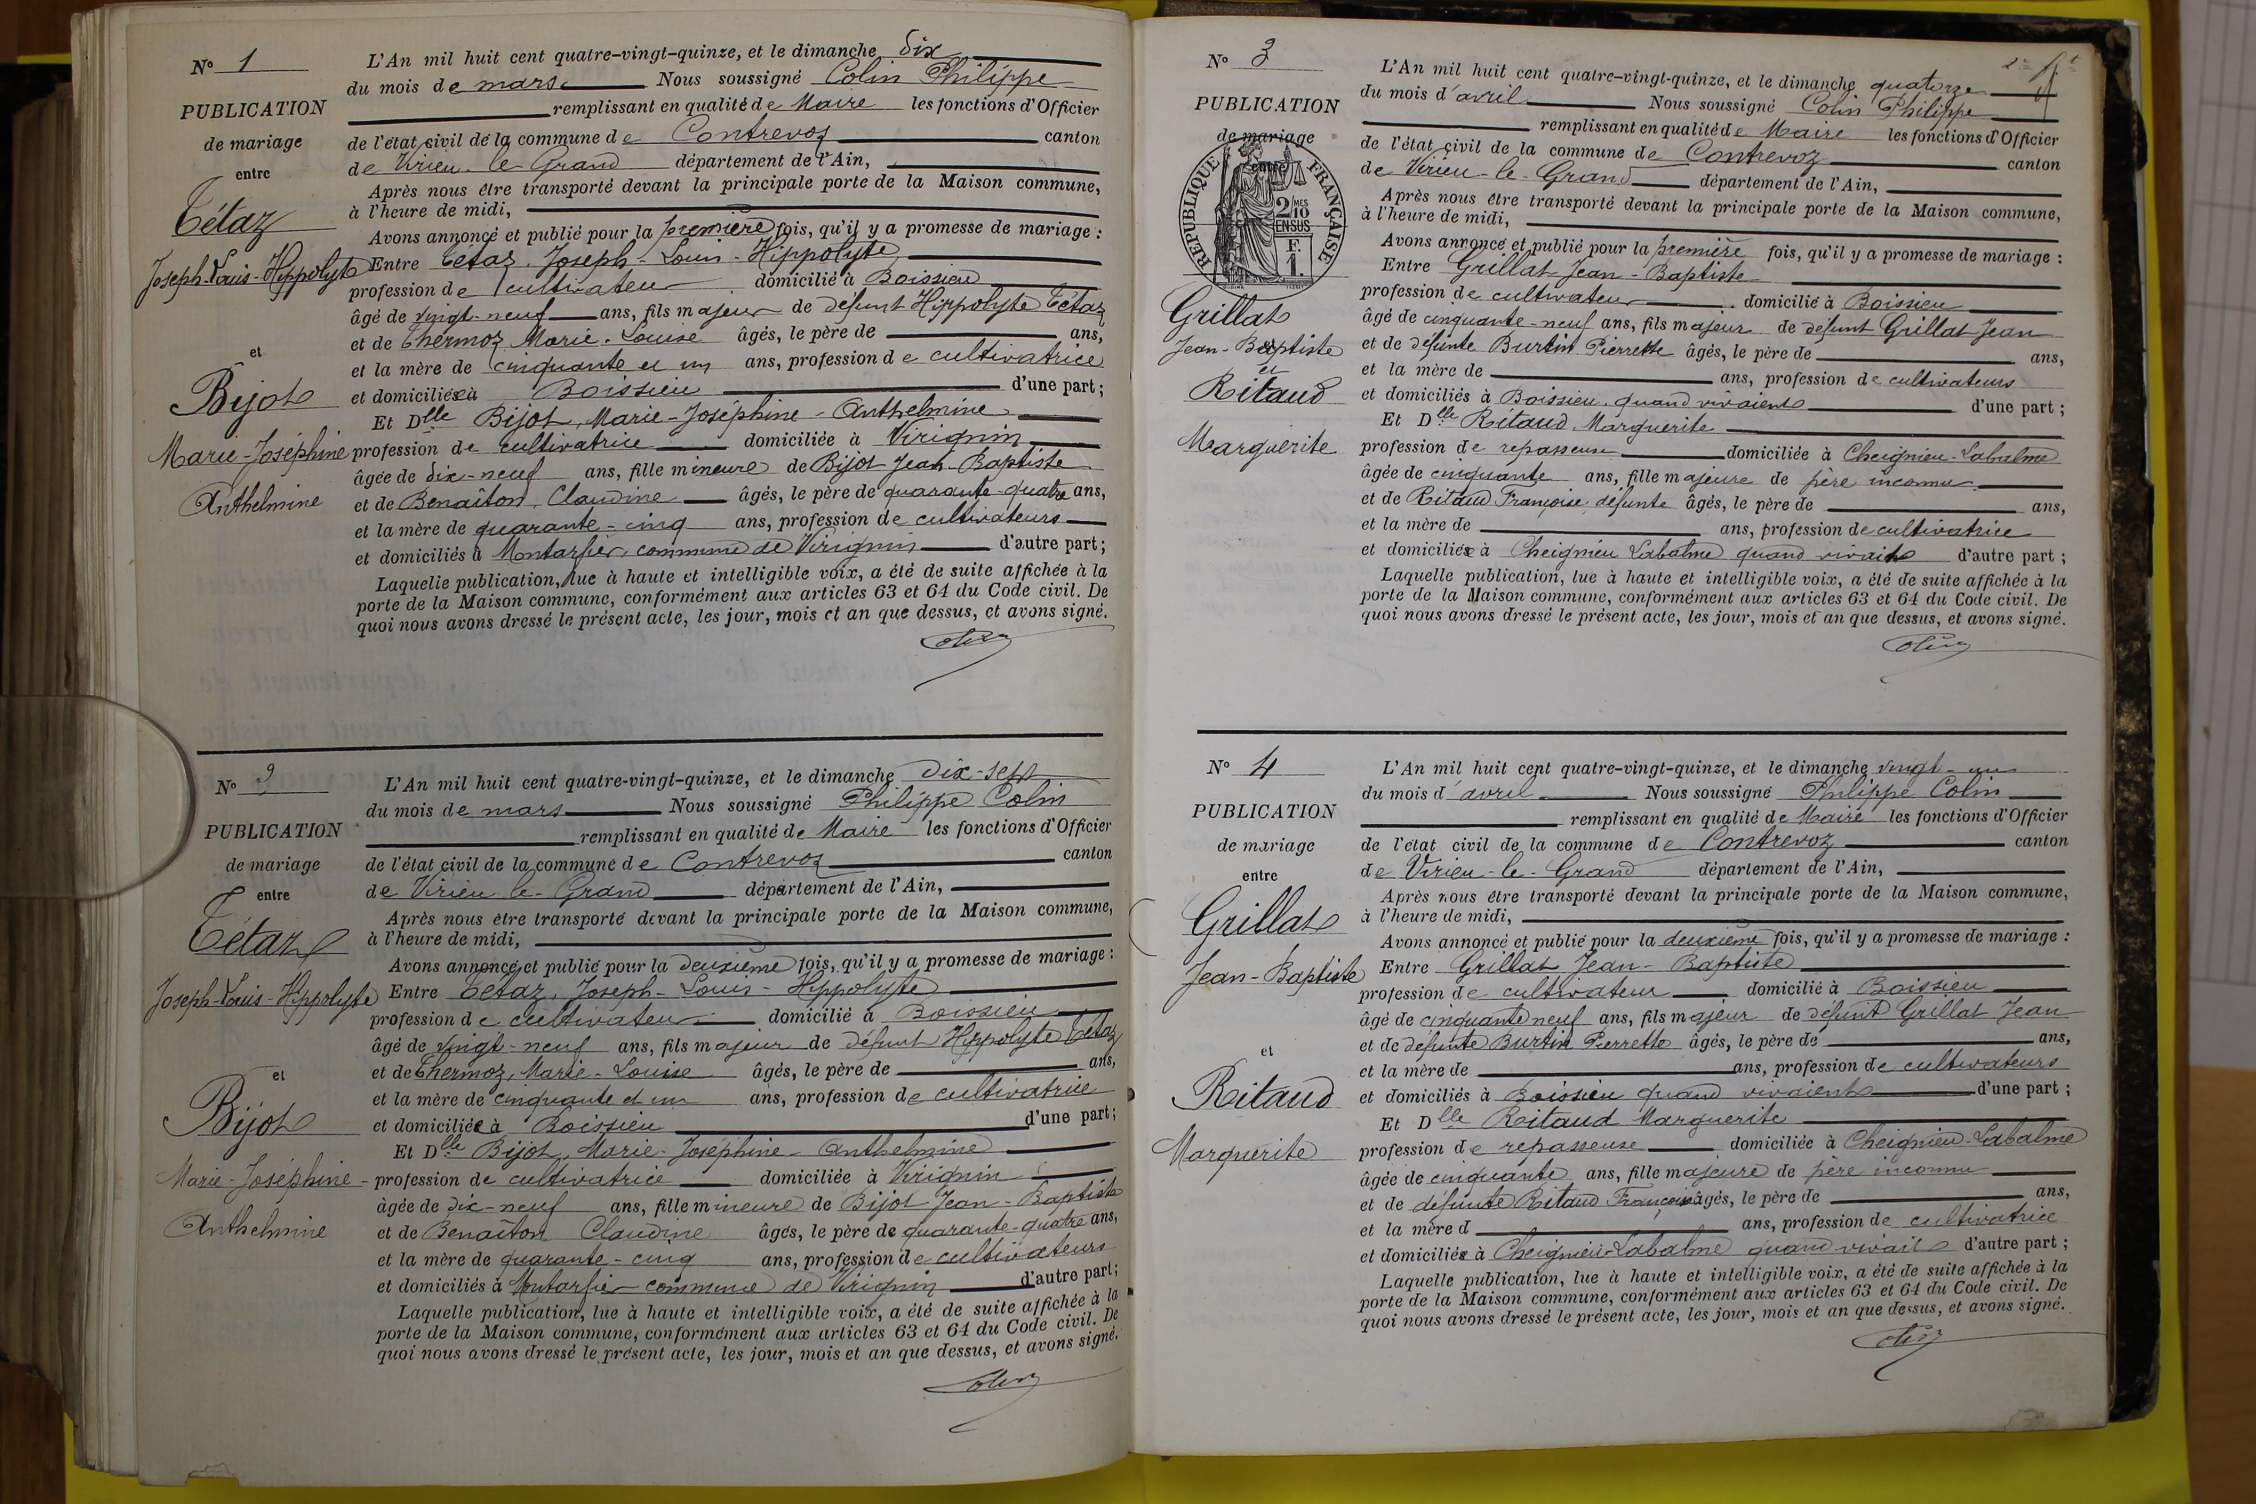 N° 1
PUBLICATION
de mariage
entre
Tétaz
Joseph-Louis-Hippolyte
et
Bijot
Marie-Joséphine
Anthelmine
L'An mil huit cent quatre-vingt-quinze, et le dimanche dix
du mois de mars Nous soussigné Colin Philippe
remplissant en qualité de Maire les fonctions d'Officier
de l'état civil de la commune de Contrevoz canton
de Virieu-le-Grand département de l'Ain,
Après nous être transporté devant la principale porte de la Maison commune,
à l'heure de midi,
Avons annoncé et publié pour la première fois, qu'il y a promesse de mariage :
Entre Tétaz, Joseph-Louis-Hippolyte
profession de cultivateur domicilié à Boissieu
âgé de vingt-neuf ans, fils majeur de défunt Hippolyte Tétaz
et de Thermoz Marie-Louise âgés, le père de ans,
et la mère de cinquante et un ans, profession de cultivatrice
et domiciliée à Boissieu d'une part ;
Et Dlle Bijot, Marie-Joséphine-Anthelmine
profession de cultivatrice domiciliée à Virignin
âgée de dix-neuf ans, fille mineure de Bijot Jean-Baptiste
et de Benaîton, Claudine âgés, le père de quarante-quatre ans,
et la mère de quarante-cinq ans, profession de cultivateurs
et domiciliés à Montarfier, commune de Virignin d'autre part ;
Laquelle publication, lue à haute et intelligible voix, a été de suite affichée à la
porte de la Maison commune, conformément aux articles 63 et 64 du Code civil. De
quoi nous avons dressé le présent acte, les jour, mois et an que dessus, et avons signé.
Colin
N° 2
PUBLICATION
de mariage
entre
Tétaz
Joseph-Louis-Hippolyte
et
Bijot
Marie-Joséphine-
Anthelmine
L'An mil huit cent quatre-vingt-quinze, et le dimanche dix-sept
du mois de mars Nous soussigné Philippe Colin
remplissant en qualité de Maire les fonctions d'Officier
de l'état civil de la commune de Contrevoz canton
de Virieu-le-Grand département de l'Ain,
Après nous être transporté devant la principale porte de la Maison commune,
à l'heure de midi,
Avons annoncé et publié pour la deuxième fois, qu'il y a promesse de mariage :
Entre Tétaz, Joseph-Louis-Hippolyte
profession de cultivateur domicilié à Boissieu
âgé de vingt-neuf ans, fils majeur de défunt Hippolyte Tétaz
et de Thermoz, Marie-Louise âgés, le père de ans,
et la mère de cinquante et un ans, profession de cultivatrice
et domiciliée à Boissieu d'une part ;
Et Dlle Bijot, Marie-Joséphine-Anthelmine
profession de cultivatrice domiciliée à Virignin
âgée de dix-neuf ans, fille mineure de Bijot Jean-Baptiste
et de Benaîton Claudine âgés, le père de quarante-quatre ans,
et la mère de quarante-cinq ans, profession de cultivateurs
et domiciliés à Montarfier commune de Virignin d'autre part ;
Laquelle publication, lue à haute et intelligible voix, a été de suite affichée à la
porte de la Maison commune, conformément aux articles 63 et 64 du Code civil. De
quoi nous avons dressé le présent acte, les jour, mois et an que dessus, et avons signé.
Colin
N° 3
PUBLICATION
de mariage
entre
RÉPUBLIQUE FRANÇAISE
2/10 MES
EN SUS
F.
1.
Grillat
Jean-Baptiste
et
Ritaud
Marguerite
L'An mil huit cent quatre-vingt-quinze, et le dimanche quatorze
du mois d'avril Nous soussigné Colin Philippe
remplissant en qualité de Maire les fonctions d'Officier
de l'état civil de la commune de Contrevoz canton
de Virieu-le-Grand département de l'Ain,
Après nous être transporté devant la principale porte de la Maison commune,
à l'heure de midi,
Avons annoncé et publié pour la première fois, qu'il y a promesse de mariage :
Entre Grillat Jean-Baptiste
profession de cultivateur domicilié à Boissieu
âgé de cinquante-neuf ans, fils majeur de défunt Grillat Jean
et de défunte Burtin Pierrette âgés, le père de ans,
et la mère de ans, profession de cultivateurs
et domiciliés à Boissieu quand vivaient d'une part ;
Et Dlle Ritaud Marguerite
profession de repasseuse domiciliée à Cheignieu-Labalme
âgée de cinquante ans, fille majeure de père inconnu
et de Ritaud Françoise défunte âgés, le père de ans,
et la mère de ans, profession de cultivatrice
et domiciliée à Cheignieu Labalme quand vivait d'autre part ;
Laquelle publication, lue à haute et intelligible voix, a été de suite affichée à la
porte de la Maison commune, conformément aux articles 63 et 64 du Code civil. De
quoi nous avons dressé le présent acte, les jour, mois et an que dessus, et avons signé.
Colin
N° 4
PUBLICATION
de mariage
entre
Grillat
Jean-Baptiste
et
Ritaud
Marguerite
L'An mil huit cent quatre-vingt-quinze, et le dimanche vingt-un
du mois d'avril Nous soussigné Philippe Colin
remplissant en qualité de Maire les fonctions d'Officier
de l'état civil de la commune de Contrevoz canton
de Virieu-le-Grand département de l'Ain,
Après nous être transporté devant la principale porte de la Maison commune,
à l'heure de midi,
Avons annoncé et publié pour la deuxième fois, qu'il y a promesse de mariage :
Entre Grillat Jean-Baptiste
profession de cultivateur domicilié à Boissieu
âgé de cinquante neuf ans, fils majeur de défunt Grillat Jean
et de défunte Burtin Pierrette âgés, le père de ans,
et la mère de ans, profession de cultivateurs
et domiciliés à Boissieu quand vivaient d'une part ;
Et Dlle Ritaud Marguerite
profession de repasseuse domiciliée à Cheignieu-Labalme
âgée de cinquante ans, fille majeure de père inconnu
et de défunte Ritaud Françoise âgés, le père de ans,
et la mère d ans, profession de cultivatrice
et domiciliée à Cheignieu-Labalme quand vivait d'autre part ;
Laquelle publication, lue à haute et intelligible voix, a été de suite affichée à la
porte de la Maison commune, conformément aux articles 63 et 64 du Code civil. De
quoi nous avons dressé le présent acte, les jour, mois et an que dessus, et avons signé.
Colin